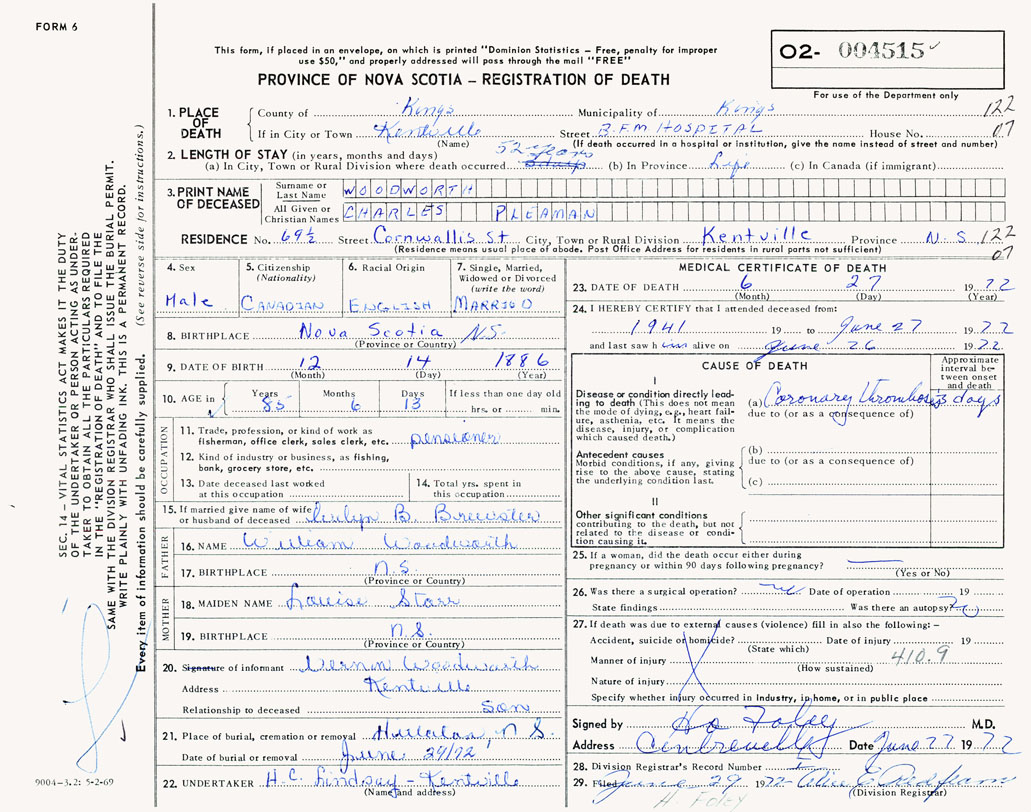 FORM 6
O2- 004515
This form, if placed in an envelope, on which is printed "Dominion Statistics – Free, penalty for improper
use $50," and properly addressed will pass through the mail "FREE"
PROVINCE OF NOVA SCOTIA – REGISTRATION OF DEATH
For use of the Department only
1. PLACE OF DEATH County of Kings Municipality of Kings 122
If in City or Town Kentville Street B.F.M HOSPITAL House No. 07
(Name) (If death occurred in a hospital or institution, give the name instead of street and number)
2. LENGTH OF STAY (in years, months and days) 52 years
(a) In City, Town or Rural Division where death occurred (b) In Province Life (c) In Canada (if immigrant)
3. PRINT NAME OF DECEASED Surname or Last Name WOODWORTH
All Given or Christian Names CHARLES PLEAMAN
RESIDENCE No. 69½ Street Cornwallis St City, Town or Rural Division Kentville Province N.S 122
(Residence means usual place of abode. Post Office Address for residents in rural parts not sufficient) 07
4. Sex Male
5. Citizenship (Nationality) CANADIAN
6. Racial Origin ENGLISH
7. Single, Married, Widowed or Divorced (write the word) MARRIED
8. BIRTHPLACE Nova Scotia N.S.
(Province or Country)
9. DATE OF BIRTH 12 14 1886
(Month) (Day) (Year)
10. AGE in Years 85 Months 6 Days 13 If less than one day hrs. or min.
OCCUPATION
11. Trade, profession, or kind of work as
fisherman, office clerk, sales clerk, etc. pensioner
12. Kind of industry or business, as fishing,
bank, grocery store, etc.
13. Date deceased last worked
at this occupation
14. Total yrs. spent in
this occupation
15. If married give name of wife
or husband of deceased B. Brewster
FATHER
16. NAME William Woodworth
17. BIRTHPLACE N.S.
(Province or Country)
MOTHER
18. MAIDEN NAME Louise Starr
19. BIRTHPLACE N.S.
(Province or Country)
20. Signature of informant Vernon Woodworth
Address Kentville
Relationship to deceased Son
21. Place of burial, cremation or removal N S.
Date of burial or removal June 29/72
22. UNDERTAKER H.C. Lindsay – Kentville
(Name and address)
MEDICAL CERTIFICATE OF DEATH
23. DATE OF DEATH 6 27 1972
(Month) (Day) (Year)
24. I HEREBY CERTIFY that I attended deceased from:
1941 19 to June 27 1972
and last saw him alive on June 26 1972
CAUSE OF DEATH
Approximate interval between onset and death
I
Disease or condition directly leading
to death (This does not mean
the mode of dying, e.g., heart failure,
asthenia, etc. It means the
disease, injury, or complication
which caused death.)
(a) Coronary thrombosis 3 days
due to (or as a consequence of)
Antecedent causes
Morbid conditions, if any, giving
rise to the above cause, stating
the underlying condition last.
(b)
due to (or as a consequence of)
(c)
II
Other significant conditions
contributing to the death, but not
related to the disease or condition
causing it.
25. If a woman, did the death occur either during
pregnancy or within 90 days following pregnancy?
(Yes or No)
26. Was there a surgical operation? no Date of operation 19
State findings Was there an autopsy? no
27. If death was due to external causes (violence) fill in also the following: –
Accident, suicide or homicide? Date of injury 19
(State which)
Manner of injury 410.9
(How sustained)
Nature of injury
Specify whether injury occurred in Industry, in home, or in public place
Signed by Foley M.D.
Address Centreville Date June 27 1972
28. Division Registrar's Record Number
29. Filed June 29 1972 Alice E
(Division Registrar)
H. Foley
SEC. 14 – VITAL STATISTICS ACT MAKES IT THE DUTY
OF THE UNDERTAKER OR PERSON ACTING AS UNDERTAKER
TO OBTAIN ALL THE PARTICULARS REQUIRED
IN THE "REGISTRATION OF DEATH" AND TO FILE THE
SAME WITH THE DIVISION REGISTRAR WHO SHALL ISSUE THE BURIAL PERMIT.
WRITE PLAINLY WITH UNFADING INK. THIS IS A PERMANENT RECORD.
Every item of information should be carefully supplied. (See reverse side for instructions.)
9004-3.2: 5-2-69